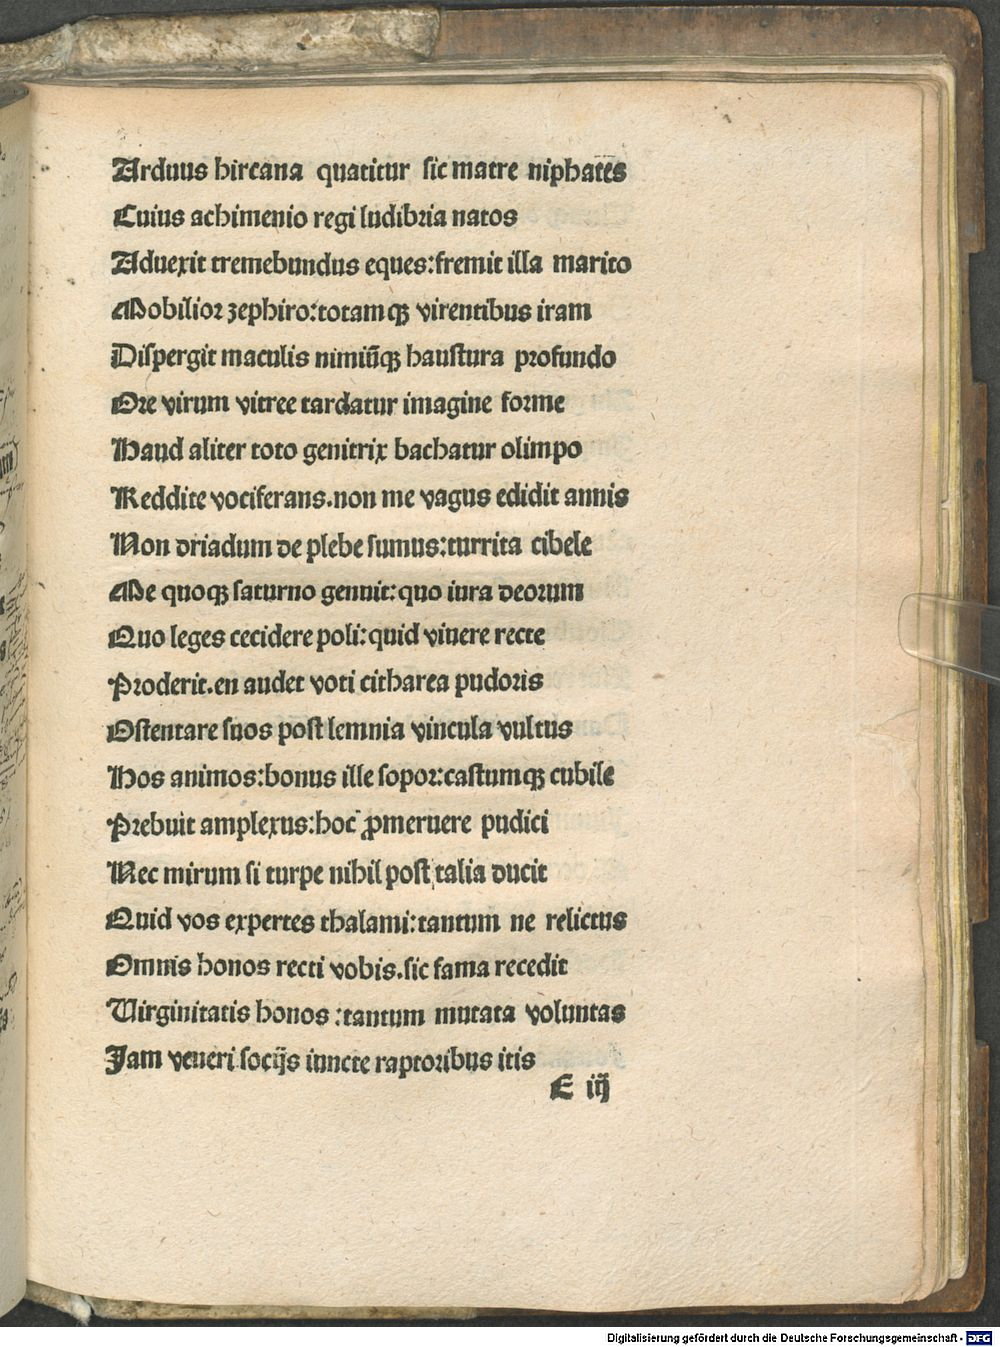 Arduus hircana quatitur sic matre niphates
Cuius achimenio regi ludibria natos
Aduexit tremebundus eques:fremit illa marito
Mobilior zephiro:totamqꝫ virentibus iram
Dispergit maculis nimiūqꝫ haustura profundo
Ore virum vitree tardatur imagine forme
Haud aliter toto genitrix bachatur olimpo
Reddite vociferans.non me vagus edidit annis
Non driadum de plebe sumus:turrita cibele
Me quoqꝫ saturno genuit:quo iura deorum
Quo leges cecidere poli:quid viuere recte
Proderit.en audet voti citharea pudoris
Ostentare suos post lemnia vincula vultus
Hos animos:bonus ille sopor:castumqꝫ cubile
Prebuit amplexus:hoc ꝓmeruere pudici
Nec mirum si turpe nihil post talia ducit
Quid vos expertes thalami:tantum ne relictus
Omnis honos recti vobis.sic fama recedit
Virginitatis honos :tantum mutata voluntas
Jam veneri socijs iuncte raptoribus itis
E iij
Digitalisierung gefördert durch die Deutsche Forschungsgemeinschaft - DFG